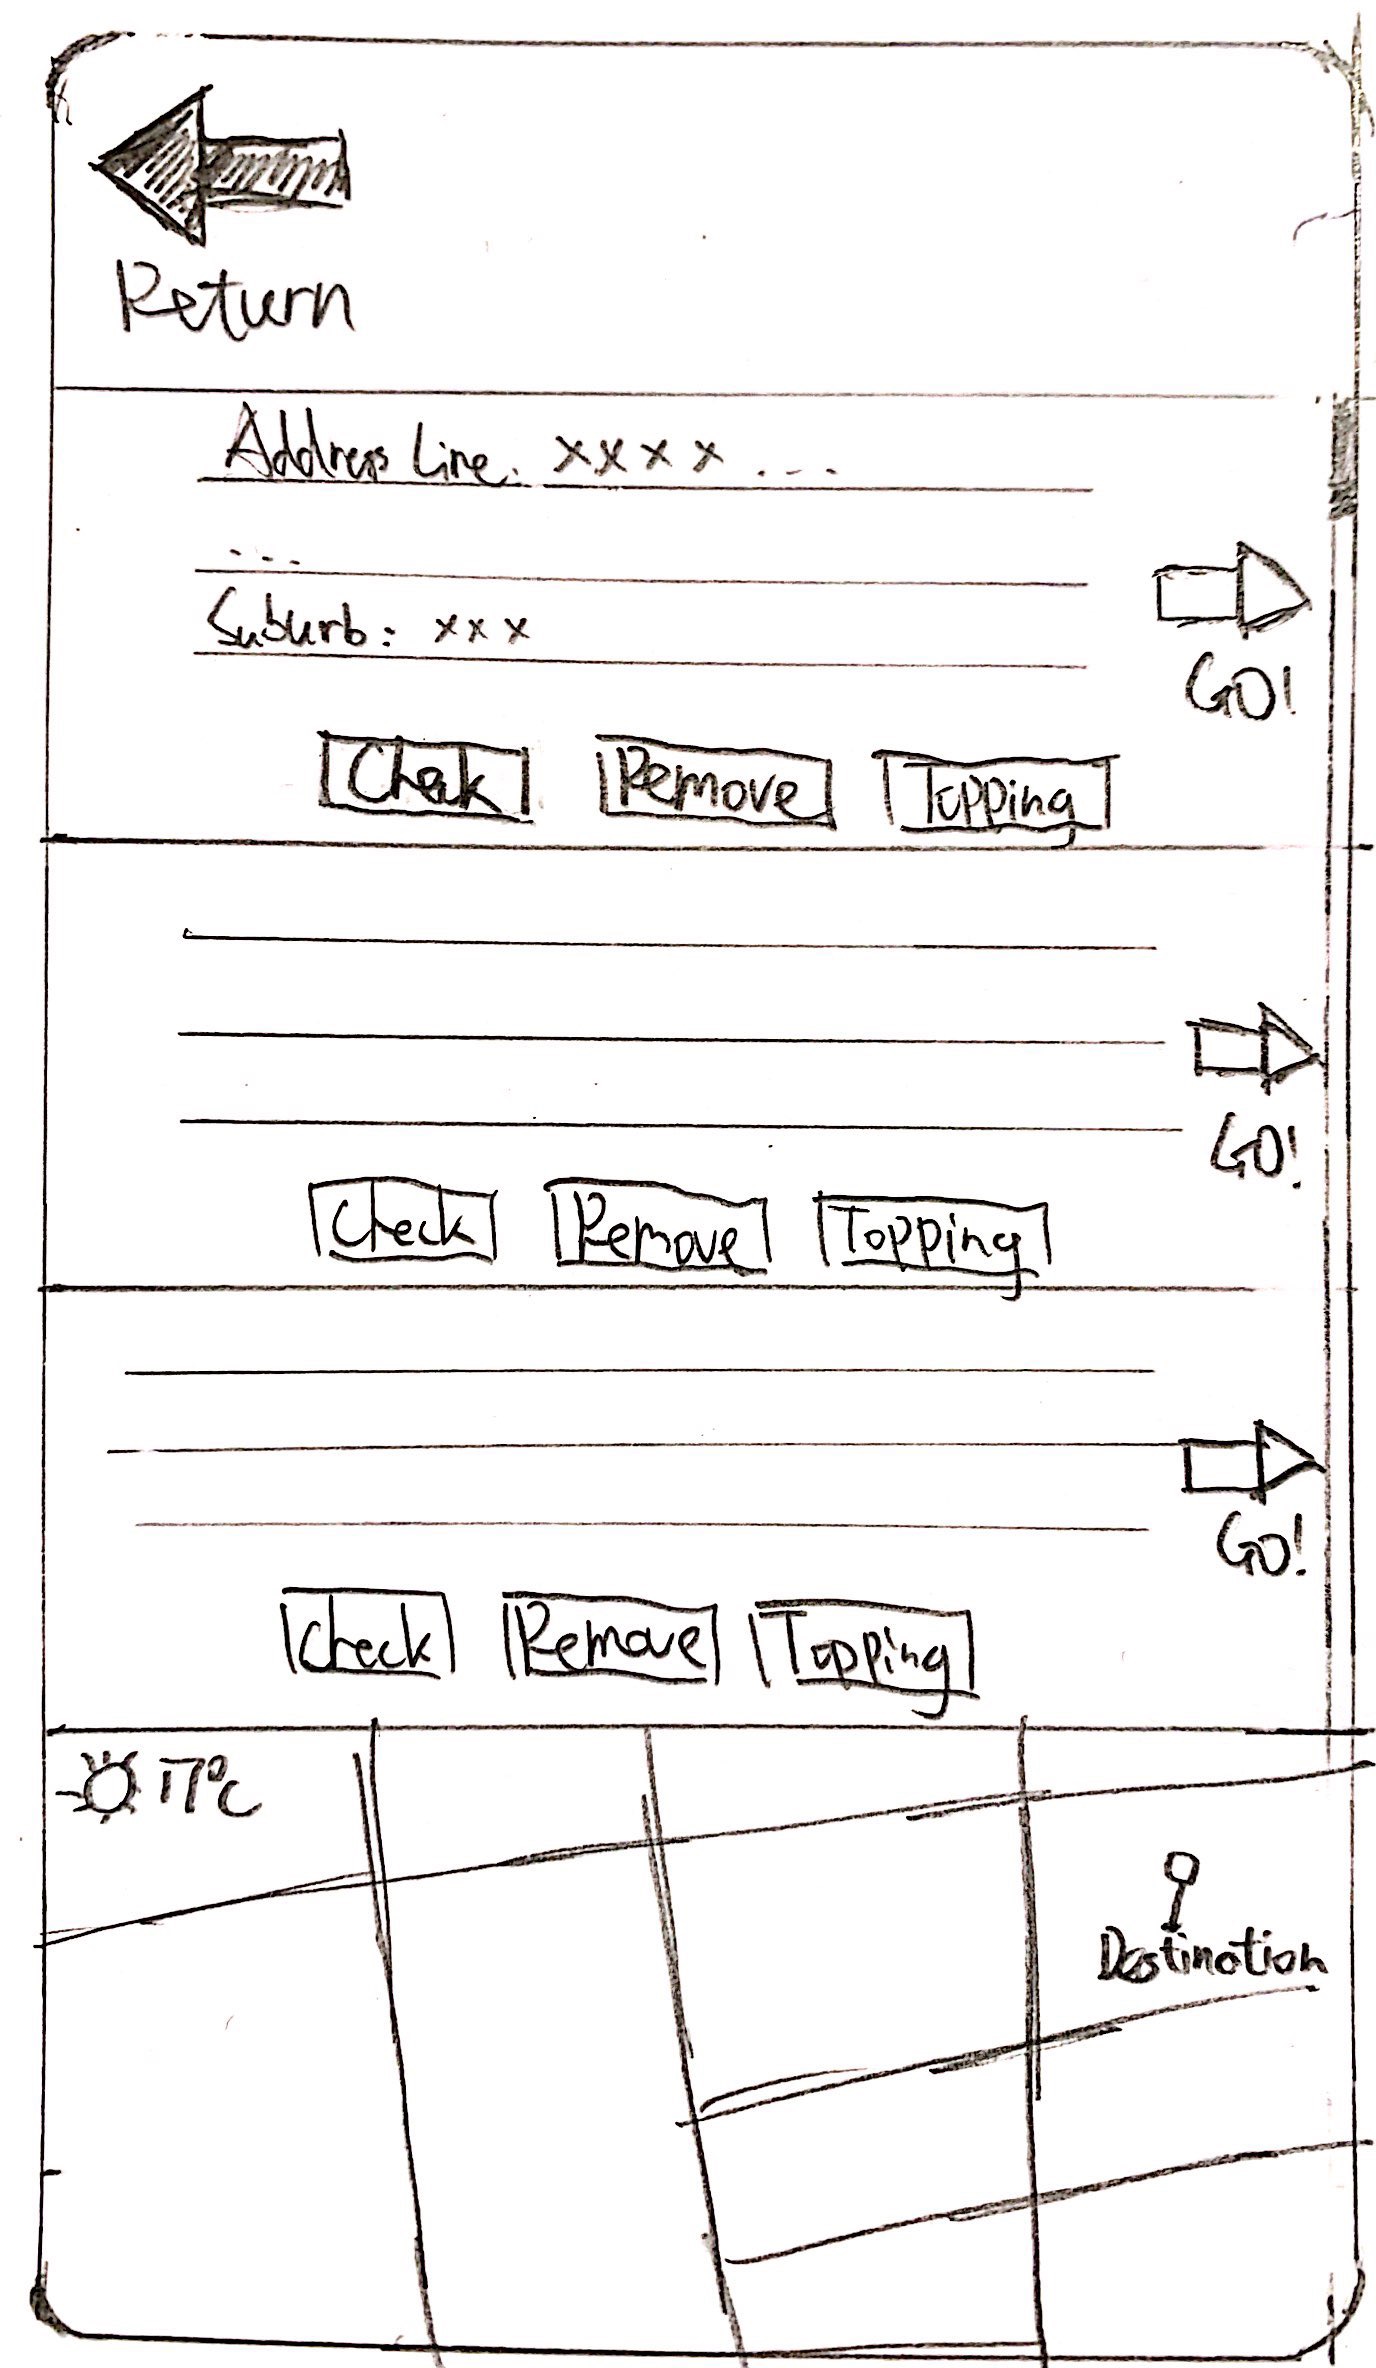 Return
Address Line: xxxx ...
...
Suburb: xxx
GO!
Check Remove Topping
GO!
Check Remove Topping
GO!
Check Remove Topping
17°C
Destination